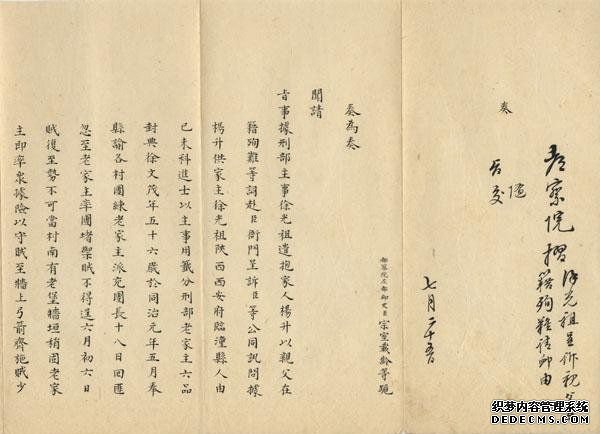 都察院摺
徐光祖呈伊親父
籍殉難請卹由
奏
隨
旨交
七月二十五日
都察院左都御史臣宗室載齡等跪
奏為奏
聞請
旨事據刑部主事徐光祖遣抱家人楊升以親父在
籍殉難等詞赴臣衙門呈訴臣等公同訊問據
楊升供家主徐光祖陝西西安府臨潼縣人由
己未科進士以主事用籤分刑部老家主六品
封典徐文茂年五十六歲於同治元年五月奉
縣諭各村團練老家主派充團長十八日回匪
忽至老家主率團堵禦賊不得逞六月初六日
賊復至勢不可當村南有老堡牆垣稍固老家
主即率衆據險以守賊至牆上弓箭齊施賊少
织梦内容管理系统
DEDECMS.COM